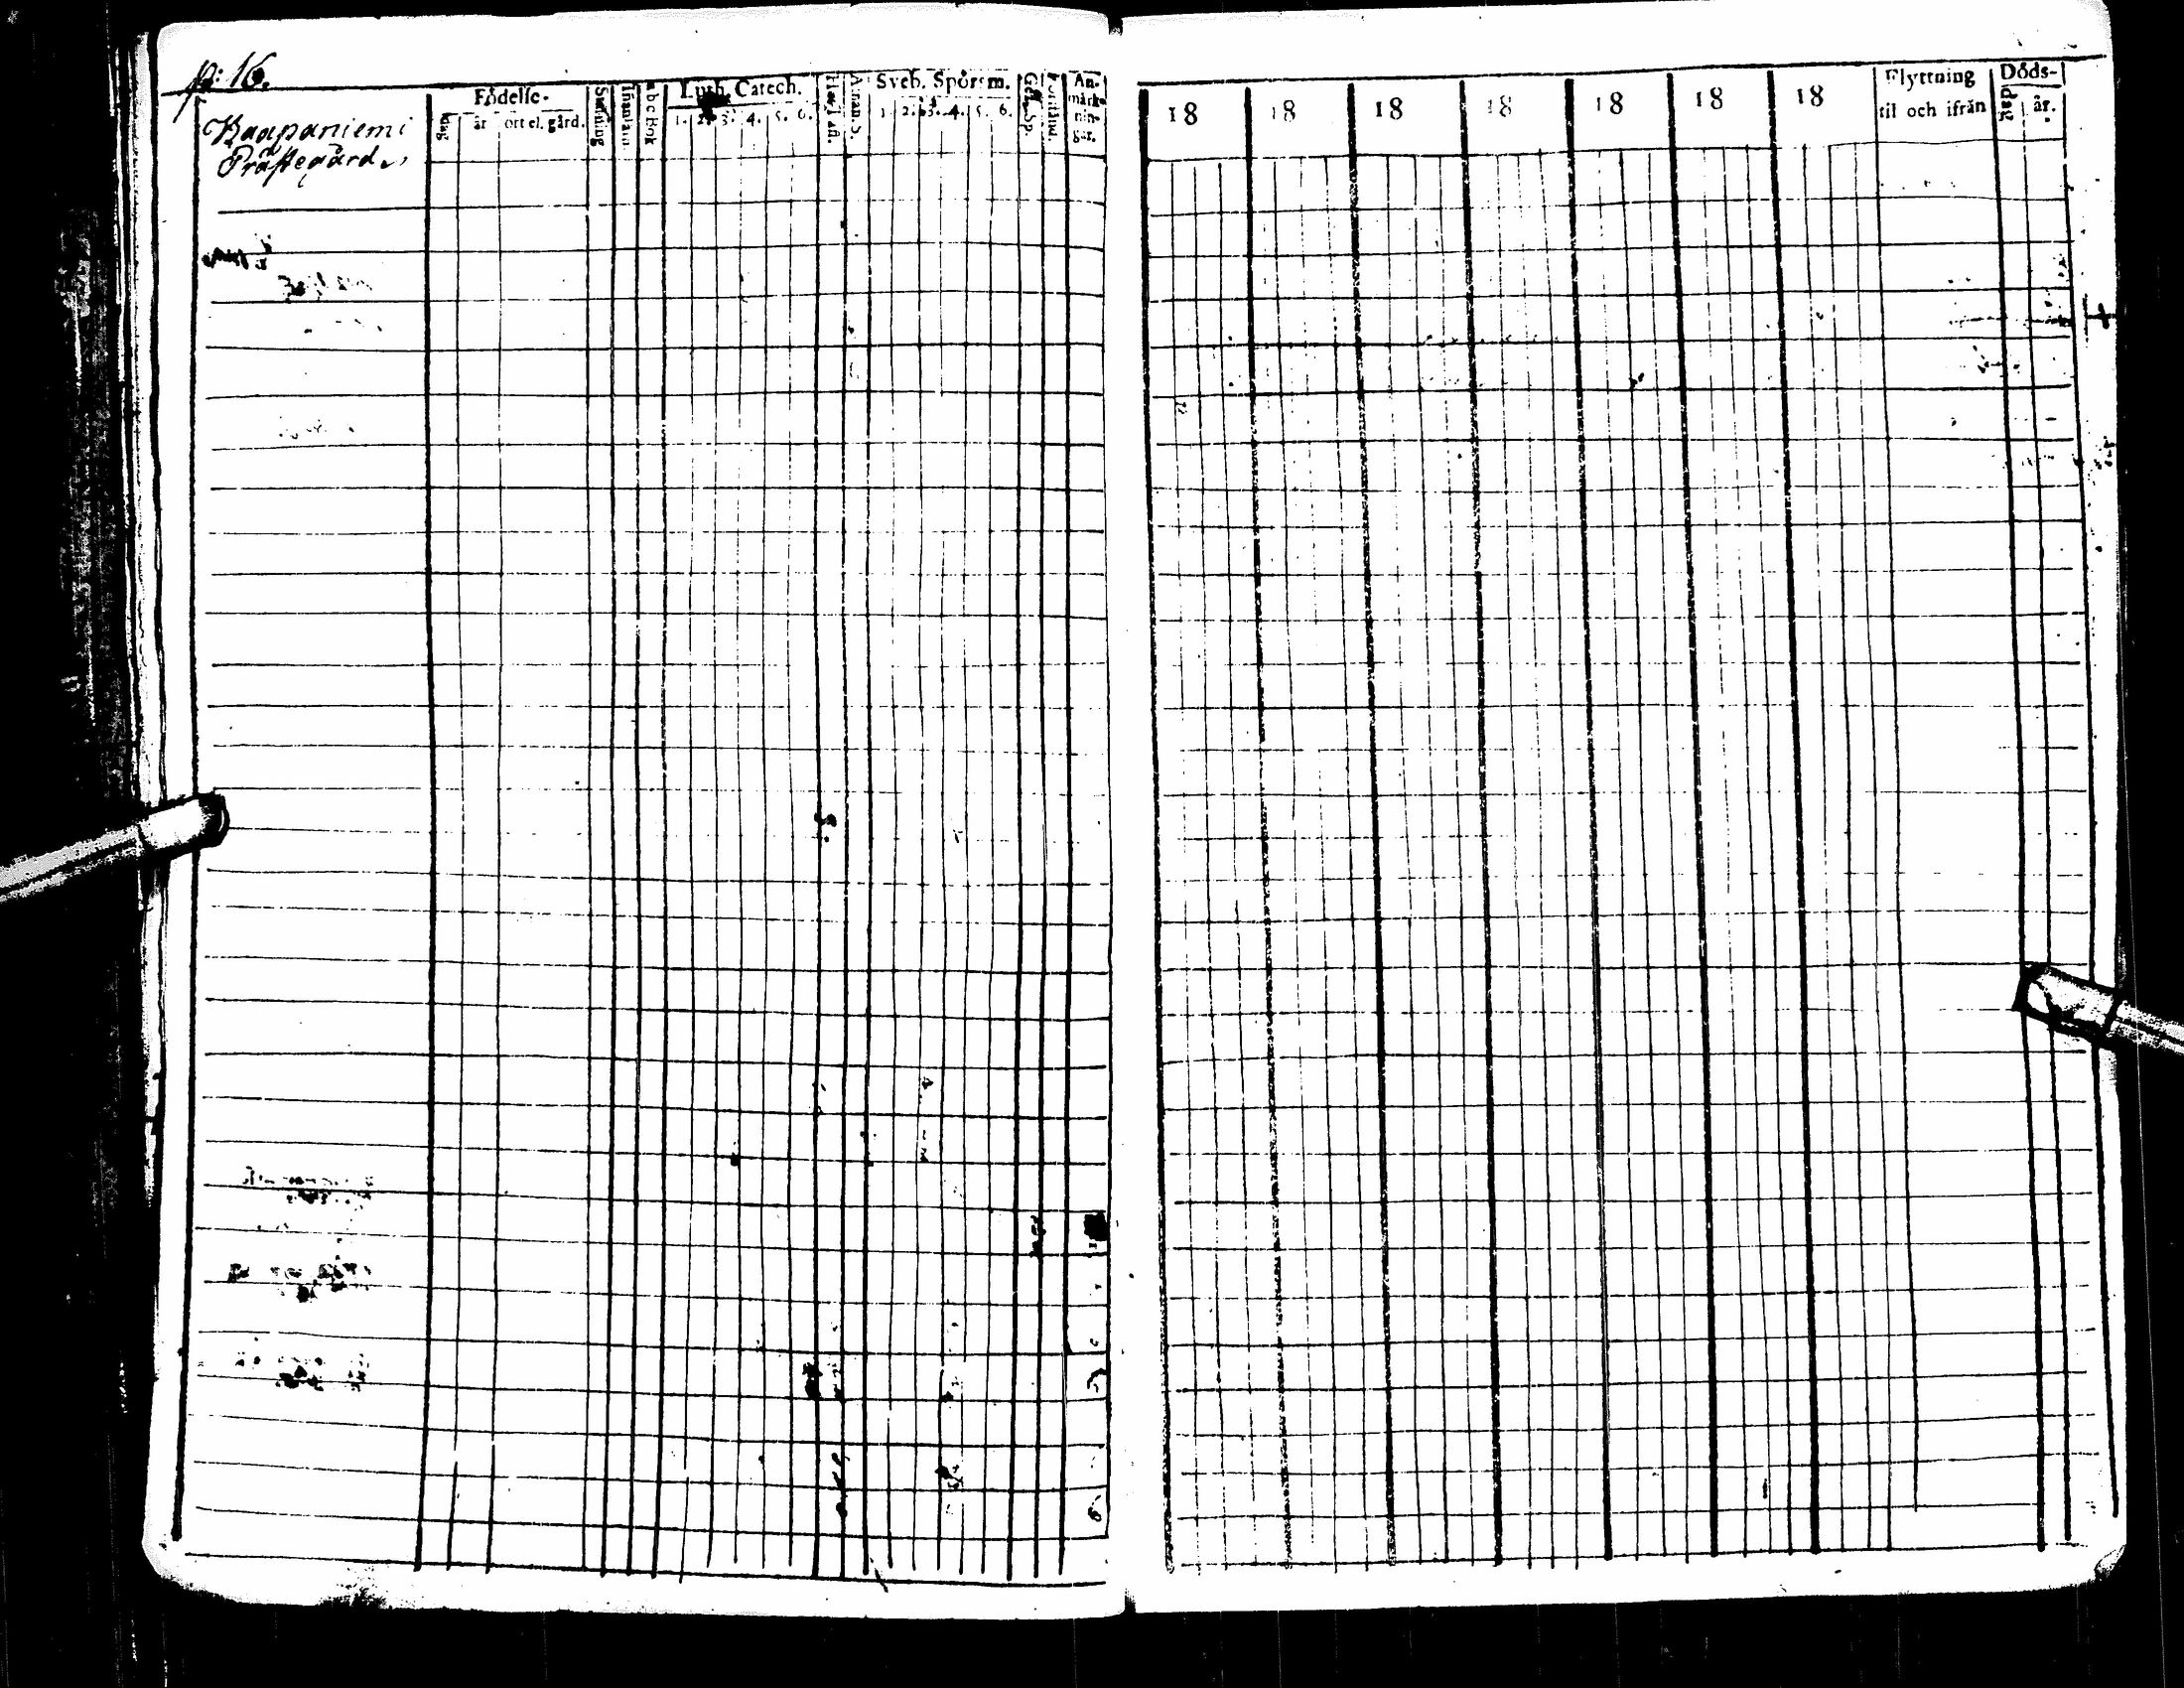 p: 16.
Kaapaniemi
Prästegård
Födelse-
dag
år
ort el. gård.
Stafning
Innanläsn.
abc Bok
Luth. Catech.
1. 2. 3. 4. 5. 6.
Sveb. Spörsm.
1. 2. 3. 4. 5. 6.
An-
märk-
nin-
gar.
18 18 18 18 18 18 18
Flyttning
til och ifrån
Döds-
dag
år.